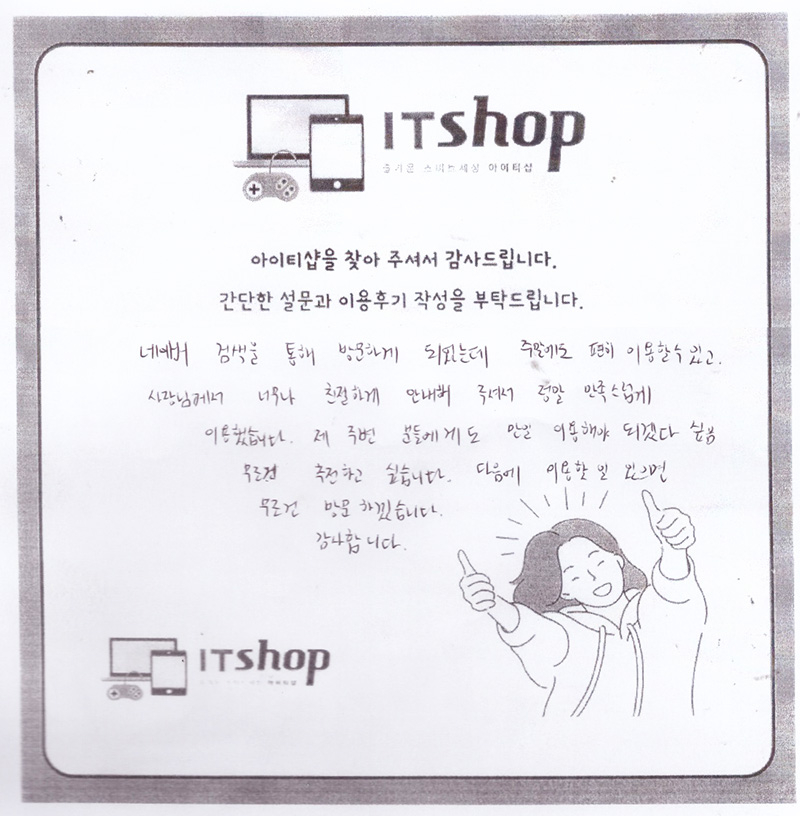 ITshop
즐거운 스마트세상 아이티샵
아이티샵을 찾아 주셔서 감사드립니다.
간단한 설문과 이용후기 작성을 부탁드립니다.
네이버 검색을 통해 방문하게 되었는데 주말에도 편히 이용할수 있고.
사장님께서 너무나 친절하게 안내해 주셔서 정말 만족스럽게
이용했습니다. 제 주변 분들에게도 만일 이용해야 되겠다 싶음
무조건 추천하고 싶습니다. 다음에 이용할 일 있으면
무조건 방문 하겠습니다.
감사합니다.
ITshop
아이티샵